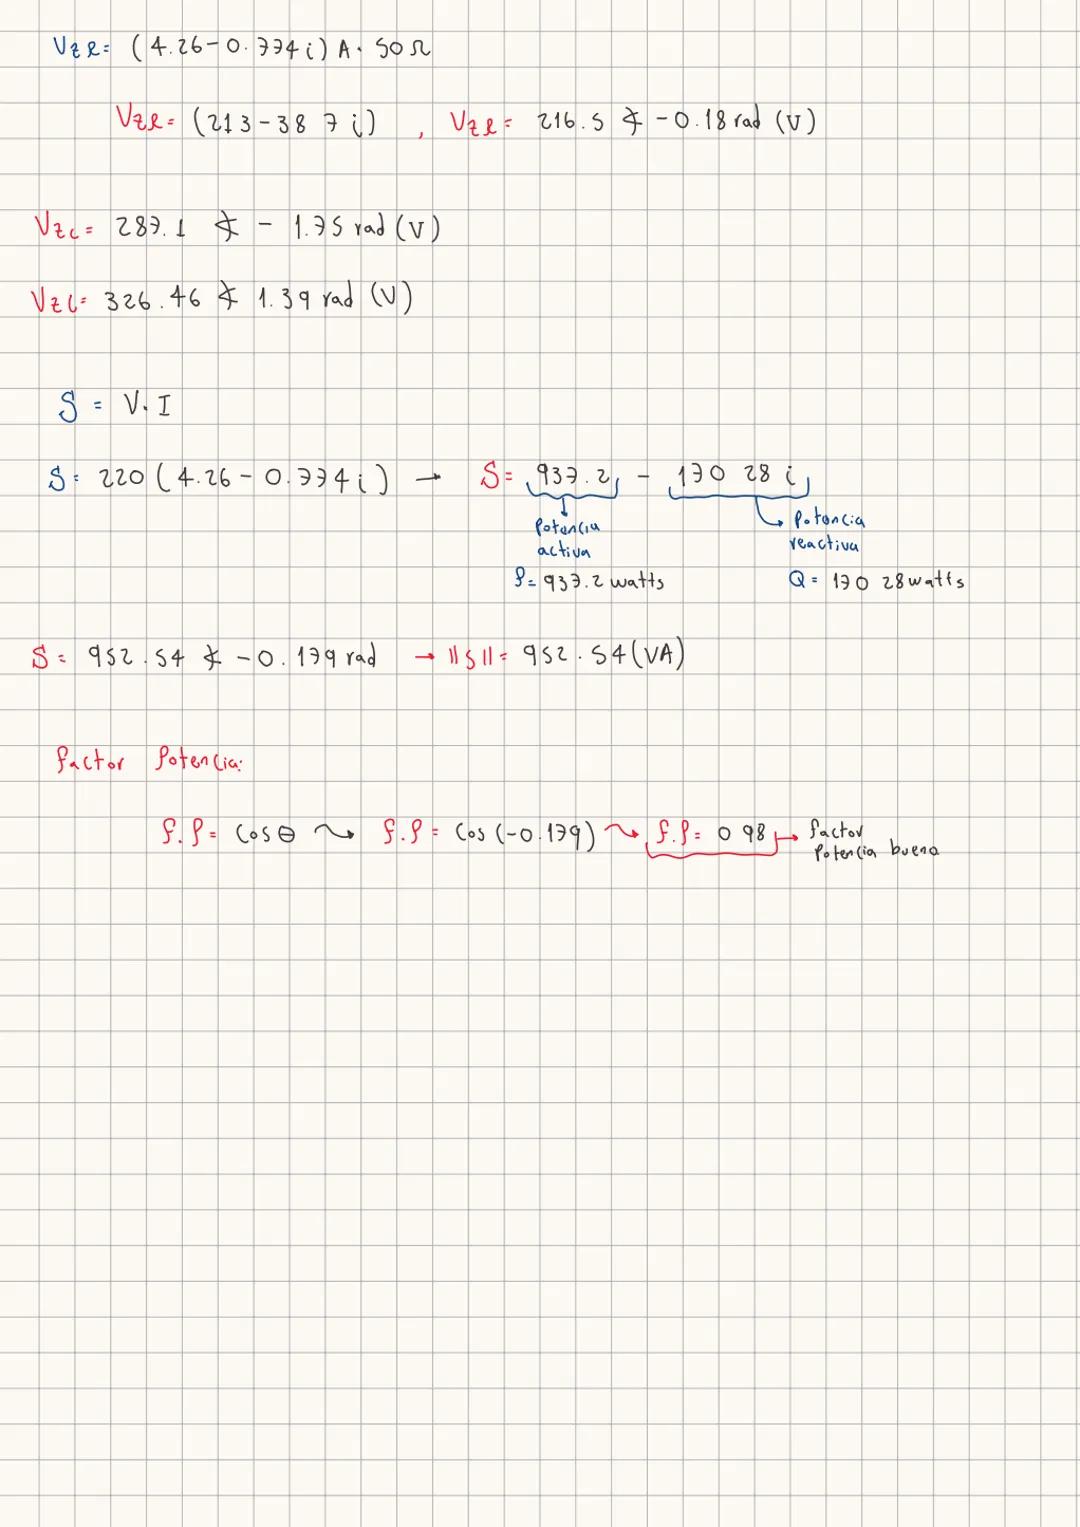 VzR= (4.26-0.774i) A · 50Ω
VzR= (213-38 7 i) , VzR= 216.5 ∡ -0.18 rad (V)
Vzc= 287.1 ∡ - 1.75 rad (V)
VzL= 326.46 ∡ 1.39 rad (V)
S = V. I
S= 220 (4.26-0.774i) → S= 937.2 - 170 28 i
Potencia activa
Potencia reactiva
P= 937.2 watts
Q= 170 28 watts
S= 952.54 ∡ -0.179 rad → ||S||= 952.54 (VA)
factor Potencia:
f.P= Cosθ ⇝ f.P= Cos (-0.179) ⇝ f.P= 0 98 → factor Potencia bueno